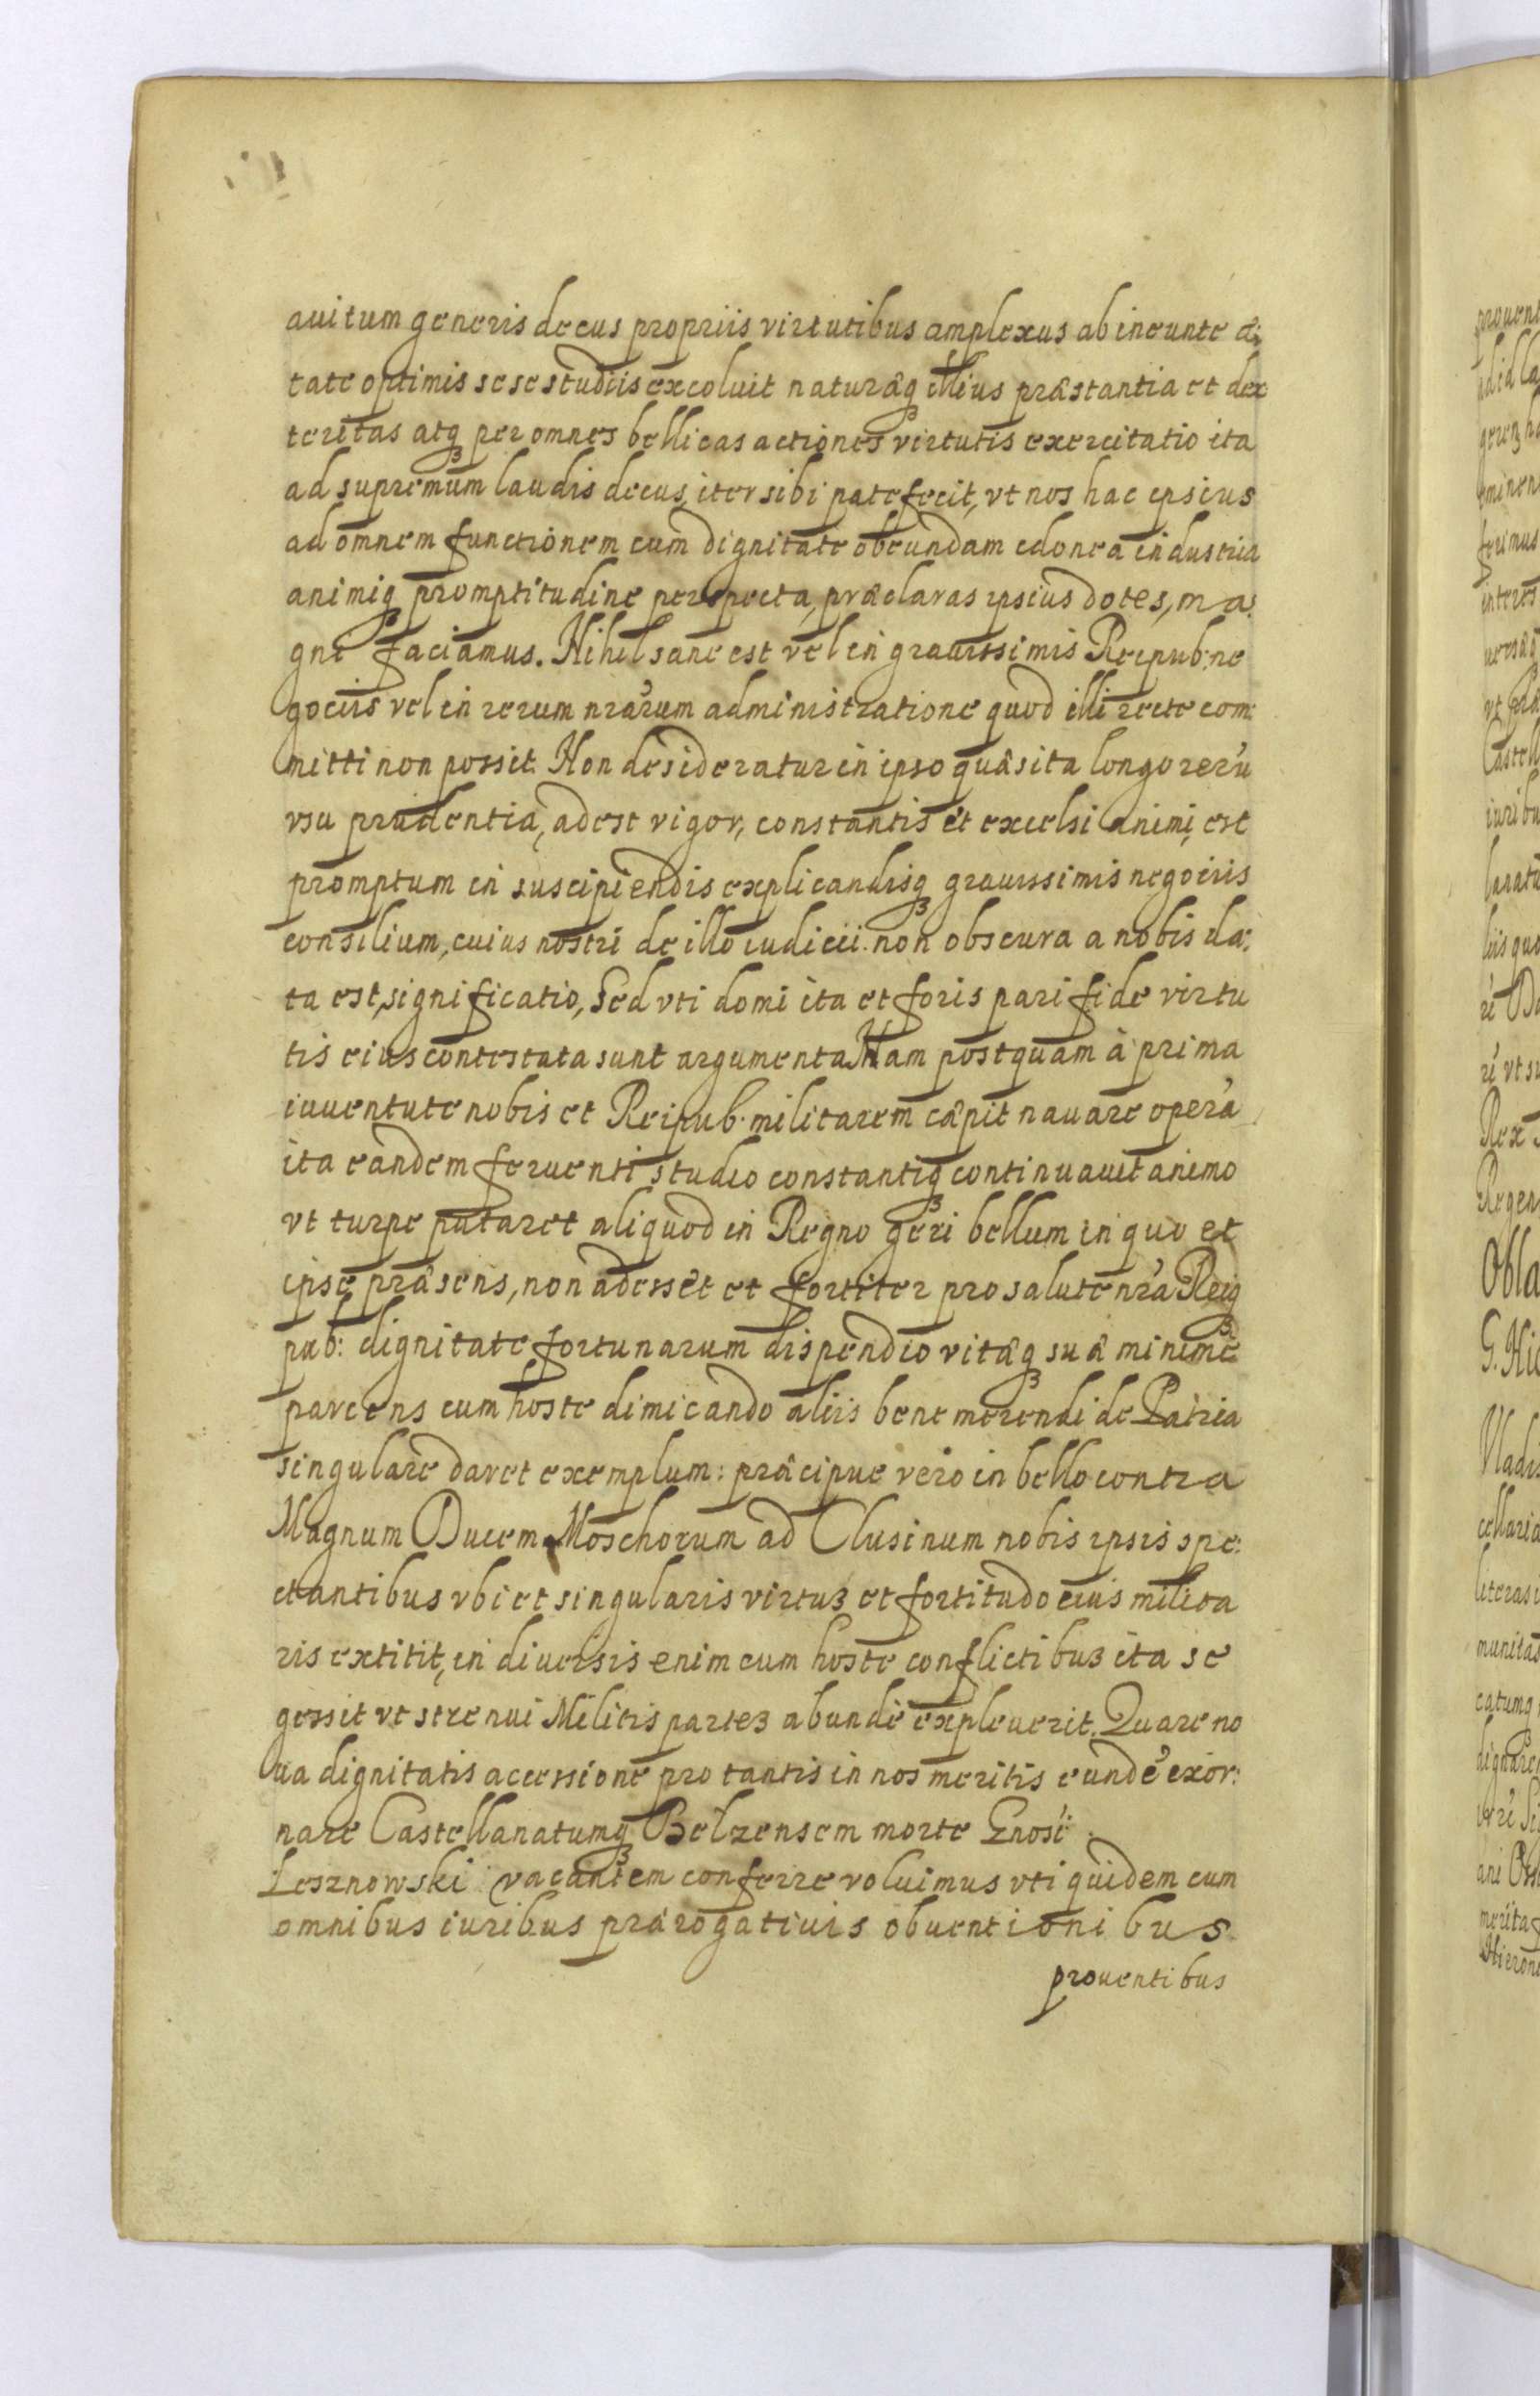 auitum generis decus propriis virtutibus amplexus ab ineunte æ:
tate optimis sese studiis excoluit naturæq̃ illius præstantia et dex
teritas atq̃ per omnes bellicas actiones virtutis exercitatio ita
ad supremum laudis decus, iter sibi patefecit, vt nos hac ipsius
ad omnem functionem cum dignitate obeundam idonea industria
animiq̃ promptitudine perspecta, præclaras ipsius dotes, ma:
gni faciamus. Nihil sane est vel in grauissimis Reipub: ne
gociis vel in rerum nrarum administratione quod illi recte com:
mitti non possit. Non desideratur in ipso quæsita longo rerũ
vsu prudentia, adest vigor, constantis et excelsi animi, est
promptum in suscipiendis explicandisq̃ grauissimis negociis
consilium, cuius nostri de illo iudicii non obscura a nobis da:
ta est, significatio, Sed vti domi ita et foris pari fide virtu
tis eius contestata sunt argumenta. Nam postquam à prima
iuuentute nobis et Reipub. militarem cæpit nauare operã
ita eandem feruenti studio constantiq̃ continuauit animo
vt turpe putaret aliquod in Regno geri bellum in quo et
ipse præsens, non adesset et fortiter pro salute nra Reiq̃
pub: dignitate fortunarum dispendio vitæq̃ suæ minimè
parcens cum hoste dimicando aliis bene merendi de Patria
singulare daret exemplum: præcipue vero in bello contra
Magnum Ducem Moschorum ad Clusinum nobis ipsis spe:
ctantibus vbi et singularis virtus et fortitudo eius milita
ris extitit, in diuersis enim cum hoste conflictibus ita se
gessit vt strenui Militis partes abundè expleuerit. Quare no
ua dignitatis accessione pro tantis in nos meritis eundẽ exor:
nare Castellanatumq̃ Belzensem morte Gnosi
Lesznowski vacantem conferre voluimus vti quidem cum
omnibus iuribus prærogatiuis obuentionibus
prouentibus